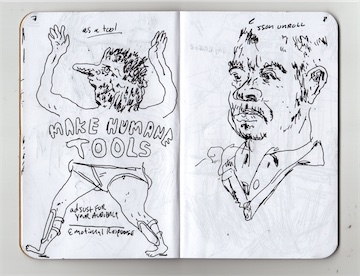 as a tool
MAKE HUMANE
TOOLS
adjust FOR
YOUR AUDIENCE
Emotional Response